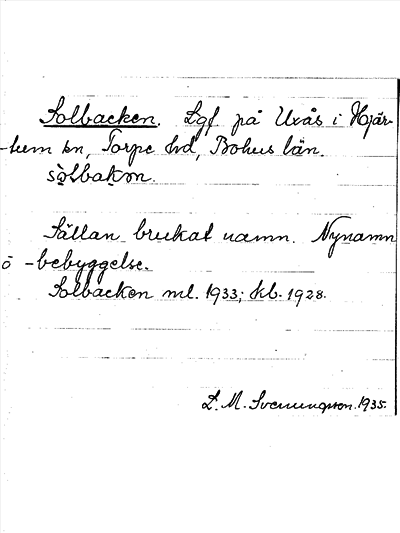 Solbacken. Lgf på Uxås i Hjär-
-tum sn, Torpe hd, Bohus län.
sòlbakən.
Sällan brukat namn. Nynamn
o -bebyggelse.
Solbacken ml. 1933; kb. 1928.
L. M. Svenungsson. 1935.